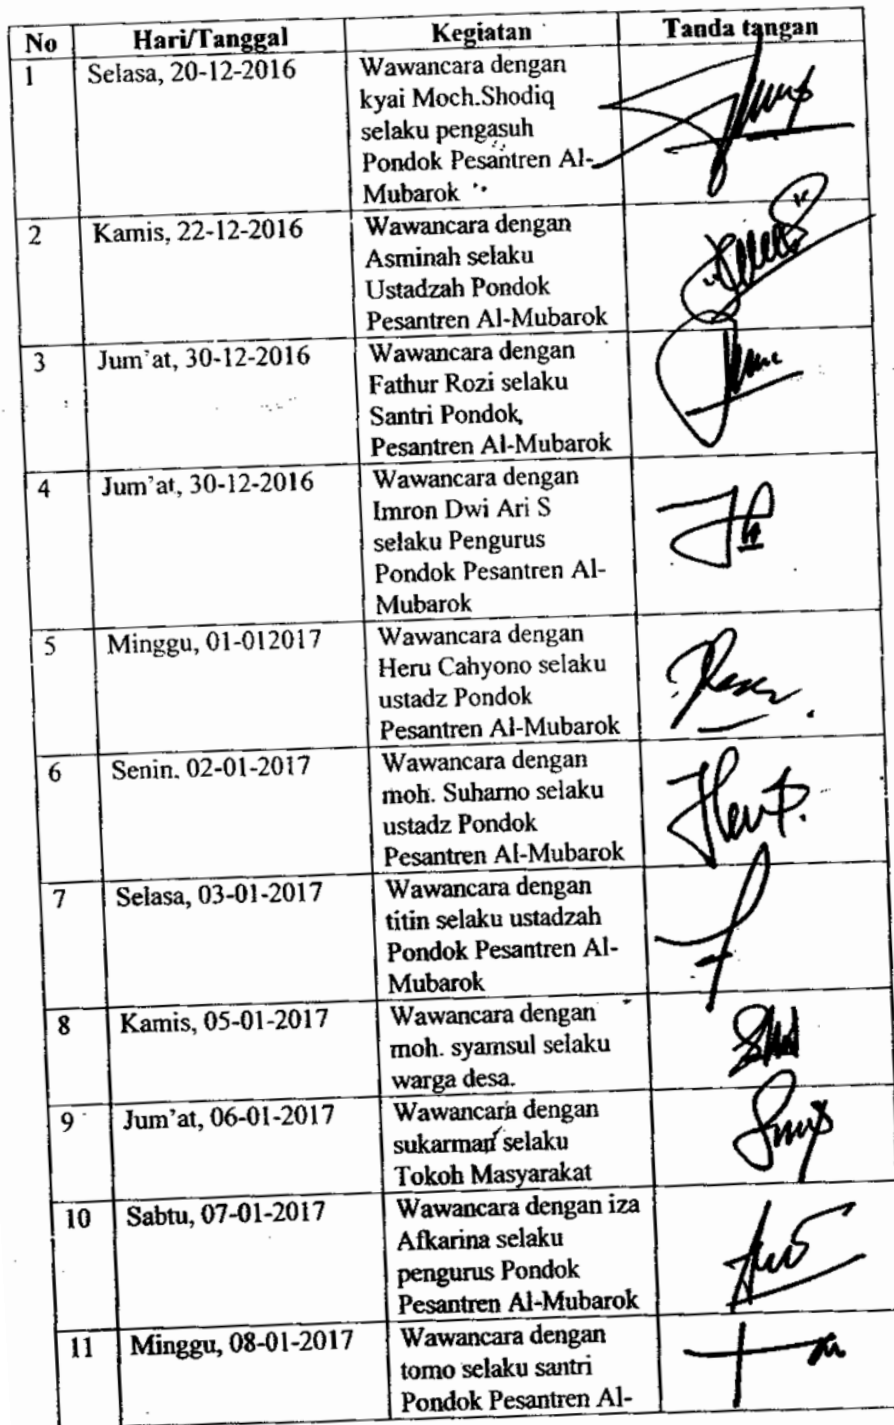 No Hari/Tanggal Kegiatan Tanda tangan
1 Selasa, 20-12-2016 Wawancara dengan
kyai Moch.Shodiq
selaku pengasuh
Pondok Pesantren Al-
Mubarok
2 Kamis, 22-12-2016 Wawancara dengan
Asminah selaku
Ustadzah Pondok
Pesantren Al-Mubarok
3 Jum'at, 30-12-2016 Wawancara dengan
Fathur Rozi selaku
Santri Pondok
Pesantren Al-Mubarok
4 Jum'at, 30-12-2016 Wawancara dengan
Imron Dwi Ari S
selaku Pengurus
Pondok Pesantren Al-
Mubarok
5 Minggu, 01-012017 Wawancara dengan
Heru Cahyono selaku
ustadz Pondok
Pesantren Al-Mubarok
6 Senin. 02-01-2017 Wawancara dengan
moh. Suharno selaku
ustadz Pondok
Pesantren Al-Mubarok
7 Selasa, 03-01-2017 Wawancara dengan
titin selaku ustadzah
Pondok Pesantren Al-
Mubarok
8 Kamis, 05-01-2017 Wawancara dengan
moh. syamsul selaku
warga desa.
9 Jum'at, 06-01-2017 Wawancara dengan
sukarman selaku
Tokoh Masyarakat
10 Sabtu, 07-01-2017 Wawancara dengan iza
Afkarina selaku
pengurus Pondok
Pesantren Al-Mubarok
11 Minggu, 08-01-2017 Wawancara dengan
tomo selaku santri
Pondok Pesantren Al-